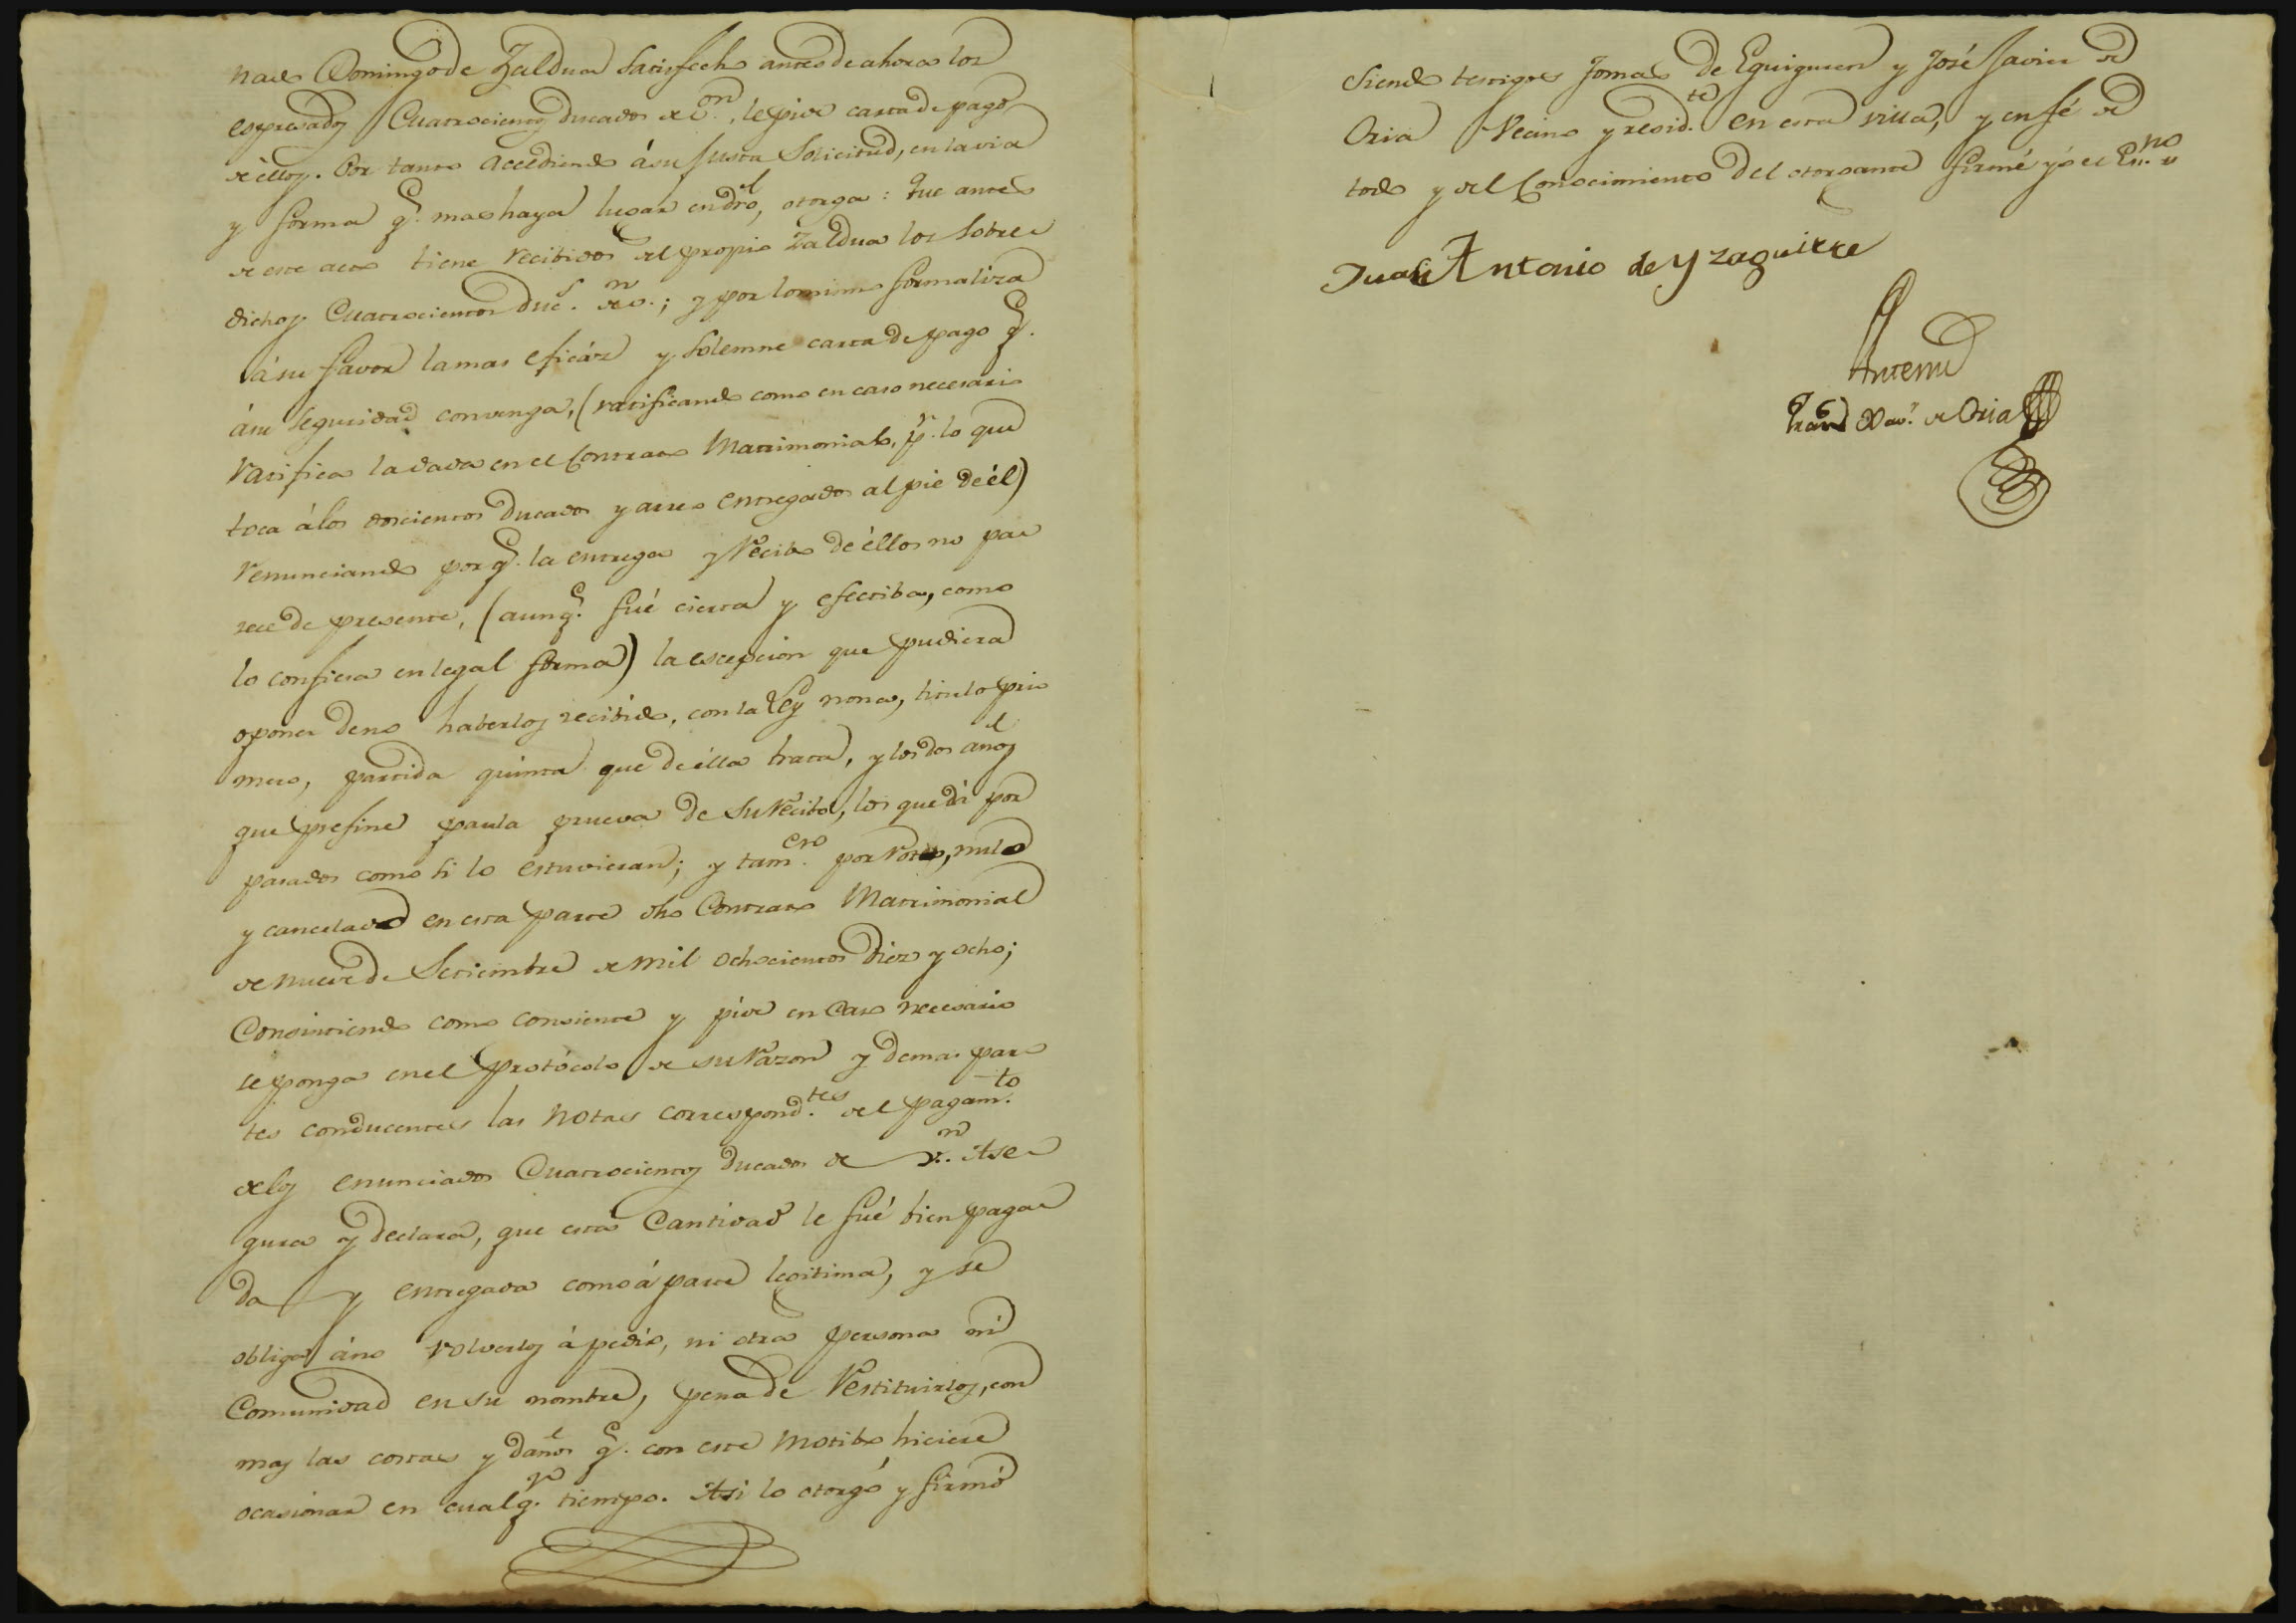 nado Domingo de Zaldua satisfecho antes de ahora los
espresados Cuatrocientos ducados de v.on, le pide carta de pago
de éllos. Por tanto accediendo á su justa solicitud, en la via
y forma q.e mas haya lugar en dro, otorga: Que antes
de este acto tiene recibidos del propio Zaldua los sobre
dichos Cuatrocientos duc.s de v.n; y por lo mismo formaliza
á su favor la mas eficáz y solemne carta de pago q.e
á su seguridad convenga, (ratificando como en caso necesario
ratifica la dada en el Contrato Matrimonial, p.r lo que
toca á los doscientos ducados y arreo entregados al pie de él)
renunciando por q.e la entrega y recibo de éllos no pa
rece de presente, (aunq.e fué cierta y efectiba, como
lo confiesa en legal forma) la escepcion que pudiera
oponer de no haberlos recibido, con la Ley nona, titulo pri
mero, partida quinta que de élla trata, y los dos años
que prefine para la prueva de su recibo, los que dá por
pasados como si lo estuvieran; y tam. por roto, nulo
y cancelado en esta parte dho Contrato Matrimonial
de nueve de Setiembre de mil ochocientos diez y ocho;
Consintiendo como consiente y pide en caso necesario
se ponga en el protócolo de su razon y demas par
tes conducentes las notas correspond.tes del pagam.to
de los enunciados Cuatrocientos ducados de v.n Ase
gura y declara, que esta Cantidad le fué bien paga
da y entregada como á parte legitima, y se
obliga á no volverlos á pedir, ni otra persona ni
Comunidad en su nombre, pena de restituirlos, con
mas las costas y daños q.e con este motibo hiciere
ocasionar en cualq.r tiempo. Asi lo otorgó y firmó
siendo testigos Tomas de Eguiguren y José Javier de
Oria Vecino y resid.te en esta villa, y en fé de
todo y del Conocimiento del otorgante firmé yó el Es.no
Juan Antonio de Yzaguirre
Antemi
Fran.co Xav.r de Oria